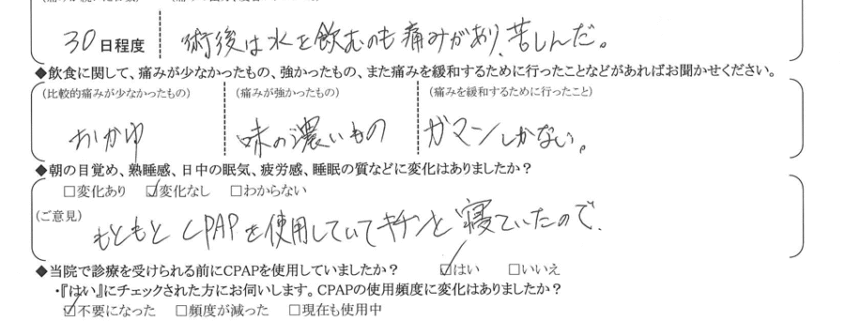 30日程度 術後は水を飲むのも痛みがあり、苦しんだ。
◆飲食に関して、痛みが少なかったもの、強かったもの、また痛みを緩和するために行ったことなどがあればお聞かせください。
(比較的痛みが少なかったもの) (痛みが強かったもの) (痛みを緩和するために行ったこと)
おかゆ 味の濃いもの ガマンしかない。
◆朝の目覚め、熟睡感、日中の眠気、疲労感、睡眠の質などに変化はありましたか？
□変化あり ☑変化なし □わからない
(ご意見) もともとCPAPを使用していてキチンと寝ていたので.
◆当院で診療を受けられる前にCPAPを使用していましたか？ ☑はい □いいえ
・『はい』にチェックされた方にお伺いします。CPAPの使用頻度に変化はありましたか？
☑不要になった □頻度が減った □現在も使用中